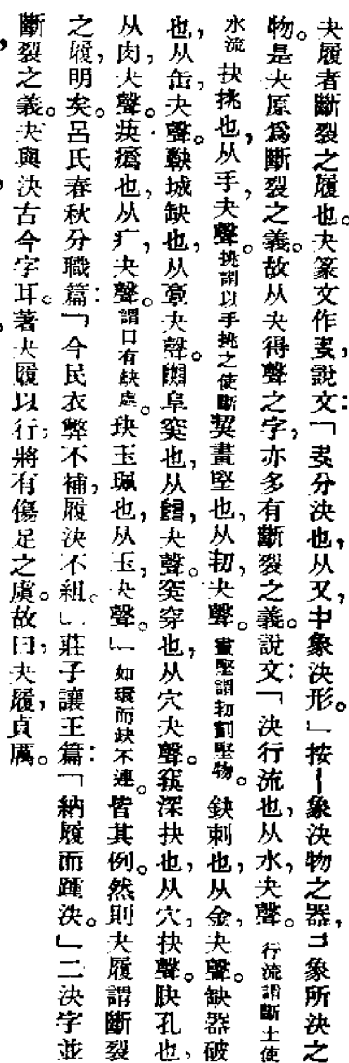 夬履者斷裂之履也。夬篆文作叏，說文：「叏分決也，从又，中象決形。」按丨象決物之器，コ象所決之
物。是夬原爲斷裂之義。故从夬得聲之字，亦多有斷裂之義。說文：「決行流也，从水，夬聲。行流謂斷土使
水流抉挑也，从手，夬聲。挑謂以手挑之使斷㓞畫堅也，从㓞，夬聲。畫堅謂㓞劃堅物。鈌刺也，从金，夬聲。缺器破
也，从缶，夬聲。𩫏城缺也，从𩫖夬聲。䦼阜突也，从𨺅，夬聲。突穿也，从穴夬聲。窫深抉也，从穴，抉聲。肤孔也，
从肉，夬聲。疾瘑也，从疒，夬聲。謂口有缺處。玦玉珮也，从玉，夬聲。」如環而缺不連。皆其例。然則夬履謂斷裂
之履，明矣。呂氏春秋分職篇：「今民衣弊不補，履決不組。」莊子讓王篇：「納履而踵決。」二決字並
斷裂之義。夬與決古今字耳。著夬履以行，將有傷足之虞。故曰，夬履，貞厲。